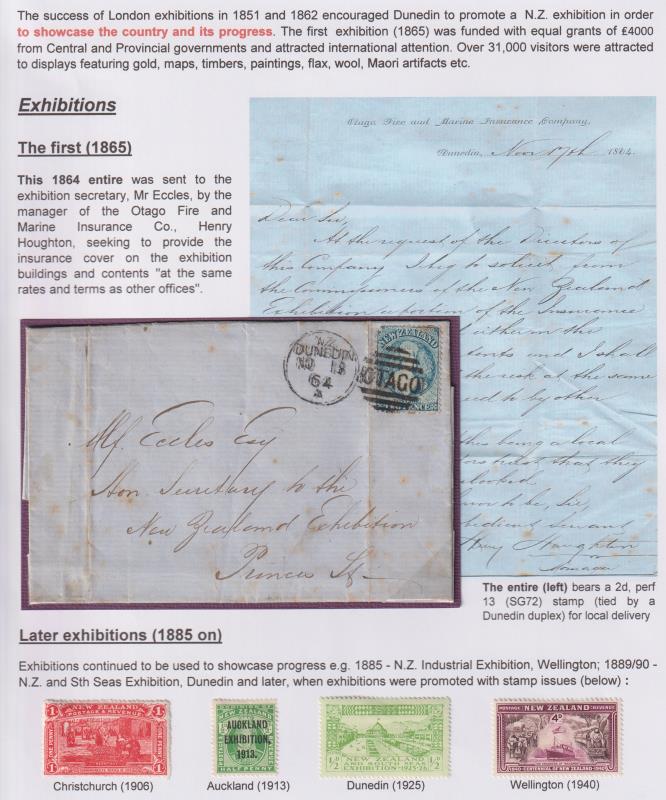 The success of London exhibitions in 1851 and 1862 encouraged Dunedin to promote a N.Z. exhibition in order
to showcase the country and its progress. The first exhibition (1865) was funded with equal grants of £4000
from Central and Provincial governments and attracted international attention. Over 31,000 visitors were attracted
to displays featuring gold, maps, timbers, paintings, flax, wool, Maori artifacts etc.
Exhibitions
The first (1865)
This 1864 entire was sent to the
exhibition secretary, Mr Eccles, by the
manager of the Otago Fire and
Marine Insurance Co., Henry
Houghton, seeking to provide the
insurance cover on the exhibition
buildings and contents "at the same
rates and terms as other offices".
Otago Fire and Marine Insurance Company,
Dunedin, Nov 17th 1864.
Dear Sir,
At the request of the Directors of
this Company I beg to solicit, from
the Commissioners of the New Zealand
Exhibition a portion of the Insurance
either in the
and I shall
the risk at the same
by other
this being a local
that they
to be, Sir,
servant
Henry Houghton
Manager
N.Z.
DUNEDIN
64
A
NEW ZEALAND
OTAGO
Alf Eccles Esq
Hon. Secretary to the
New Zealand Exhibition
Princes St.
The entire (left) bears a 2d, perf
13 (SG72) stamp (tied by a
Dunedin duplex) for local delivery
Later exhibitions (1885 on)
Exhibitions continued to be used to showcase progress e.g. 1885 - N.Z. Industrial Exhibition, Wellington; 1889/90 -
N.Z. and Sth Seas Exhibition, Dunedin and later, when exhibitions were promoted with stamp issues (below) :
1 NEW ZEALAND 1
POSTAGE & REVENUE
ONE PENNY
1 1
AUCKLAND
EXHIBITION,
1913.
HALFPENNY
½D NEW ZEALAND ½D
AND SOUTH SEAS
EXHIBITION 1925-26
POSTAGE NEW ZEALAND REVENUE
4D
1940 CENTENNIAL OF NEW ZEALAND 1940
Christchurch (1906)
Auckland (1913)
Dunedin (1925)
Wellington (1940)